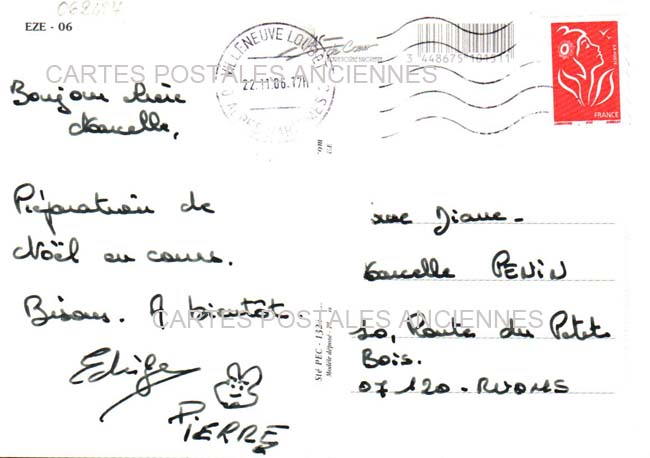 EZE - 06
Bonjour
Marcelle,
Préparation de
Noël en cours.
Bisous. A bientôt.
Edwige
PIERRE
VILLENEUVE LOUBET
22.11.06.17H
ALPES MARITIMES
3 448675 101511
LA POSTE
FRANCE
Sté PEC - 132
Modèle déposé
Diane
Marcelle PENIN
10, Route du Petit
Bois.
07120 - RUOMS
CARTES POSTALES ANCIENNES
CARTES POSTALES ANCIENNES